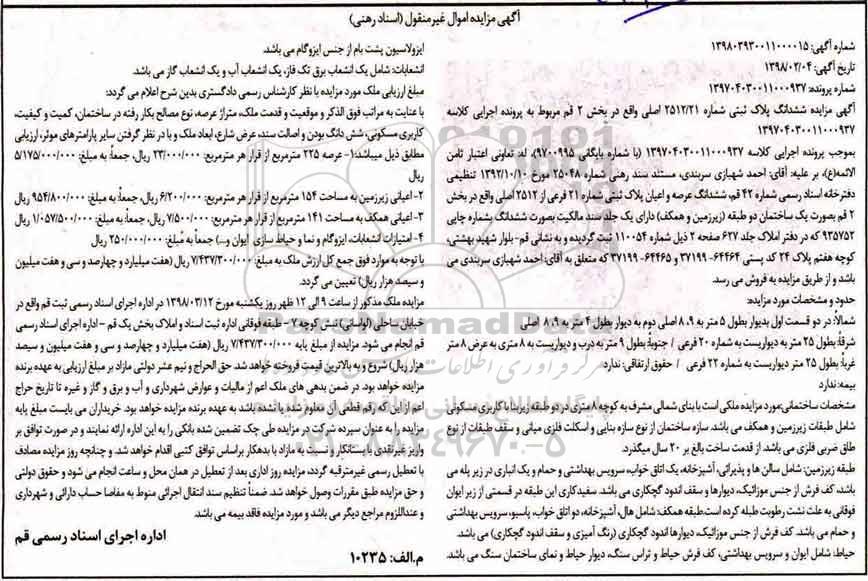 آگهی مزایده اموال غیرمنقول (اسناد رهنی)
شماره آگهی: ۱۳۹۸۰۳۹۳۰۰۱۱۰۰۰۰۱۵
تاریخ آگهی: ۱۳۹۸/۰۲/۰۴
شماره پرونده: ۱۳۹۷۰۴۰۳۰۰۱۱۰۰۰۹۳۷
آگهی مزایده ششدانگ پلاک ثبتی شماره ۲۵۱۲/۲۱ اصلی واقع در بخش ۲ قم مربوط به پرونده اجرایی کلاسه
۱۳۹۷۰۴۰۳۰۰۱۱۰۰۰۹۳۷
بموجب پرونده اجرایی کلاسه ۱۳۹۷۰۴۰۳۰۰۱۱۰۰۰۹۳۷ (با شماره بایگانی ۹۷۰۰۹۹۵)، له: تعاونی اعتبار ثامن
الائمه(ع)، بر علیه: آقای: احمد شهبازی سربندی، مستند سند رهنی شماره ۲۵۰۴۸ مورخ ۱۳۹۲/۱۰/۱۰ تنظیمی
دفترخانه اسناد رسمی شماره ۴۲ قم، ششدانگ عرصه و اعیان پلاک ثبتی شماره ۲۱ فرعی از ۲۵۱۲ اصلی واقع در بخش
۲ قم بصورت یک ساختمان دو طبقه (زیرزمین و همکف) دارای یک جلد سند مالکیت بصورت ششدانگ بشماره چاپی
۹۳۵۷۵۲ که در دفتر املاک جلد ۶۲۷ صفحه ۲ ذیل شماره ۱۱۰۰۵۴ ثبت گردیده و به نشانی قم- بلوار شهید بهشتی،
کوچه هفتم پلاک ۲۴ کد پستی ۶۴۴۶۴-۳۷۱۹۹ و ۶۴۴۶۵-۳۷۱۹۹ که متعلق به آقای: احمد شهبازی سربندی می
باشد و از طریق مزایده به فروش می رسد.
حدود و مشخصات مورد مزایده:
شمالاً: در دو قسمت اول بدیوار بطول ۵ متر به ۸،۹ اصلی دوم به دیوار بطول ۴ متر به ۸،۹ اصلی
شرقاً: بطول ۲۵ متر به دیواریست به شماره ۲۰ فرعی / جنوباً: بطول ۹ متر به درب و دیواریست به ۸ متری به عرض ۸ متر
غرباً: بطول ۲۵ متر دیواریست به شماره ۲۲ فرعی / حقوق ارتفاقی: ندارد
بیمه: ندارد
مشخصات ساختمانی: مورد مزایده ملکی است با بنای شمالی مشرف به کوچه ۸ متری در دو طبقه زیربنا با کاربری مسکونی
شامل طبقات زیرزمین و همکف می باشد. سازه ساختمان از نوع سازه بنایی و اسکلت فلزی میانی و سقف طبقات از نوع
طاق ضربی فلزی می باشد. از قدمت ساخت بالغ بر ۲۰ سال میگذرد.
طبقه زیرزمین: شامل سالن ها و پذیرائی، آشپزخانه، یک اتاق خواب، سرویس بهداشتی و حمام و یک انباری در زیر پله می
باشد، کف فرش از جنس موزائیک، دیوارها و سقف اندود گچکاری می باشد. سفیدکاری این طبقه در قسمتی از زیر ایوان
فوقانی به علت نشت رطوبت طبله کرده است. طبقه همکف: شامل هال، آشپزخانه، دو اتاق خواب، پاسیو، سرویس بهداشتی
و حمام می باشد. کف فرش از جنس موزائیک، دیوارها اندود گچکاری (رنگ آمیزی و سقف اندود گچکاری) می باشد.
حیاط: شامل ایوان و سرویس بهداشتی، کف فرش حیاط و تراس سنگ، دیوار حیاط و نمای ساختمان سنگ می باشد.
ایزولاسیون پشت بام از جنس ایزوگام می باشد.
انشعابات: شامل یک انشعاب برق تک فاز، یک انشعاب آب و یک انشعاب گاز می باشد.
مبلغ ارزیابی ملک مورد مزایده با نظر کارشناس رسمی دادگستری بدین شرح اعلام می گردد:
با عنایت به مراتب فوق الذکر و موقعیت و قدمت ملک، متراژ عرصه، نوع مصالح بکار رفته در ساختمان، کمیت و کیفیت،
کاربری مسکونی، شش دانگ بودن و اصالت سند، عرض شارع، ابعاد ملک و با در نظر گرفتن سایر پارامترهای موثر، ارزیابی
مطابق ذیل میباشد: ۱- عرصه ۲۲۵ مترمربع از قرار هر مترمربع: ۲۳/۰۰۰/۰۰۰ ریال، جمعاً به مبلغ: ۵/۱۷۵/۰۰۰/۰۰۰
ریال
۲- اعیانی زیرزمین به مساحت ۱۵۴ مترمربع از قرار هر مترمربع: ۶/۲۰۰/۰۰۰ ریال، جمعاً به مبلغ: ۹۵۴/۸۰۰/۰۰۰ ریال
۳- اعیانی همکف به مساحت ۱۴۱ مترمربع از قرار هر مترمربع: ۷/۵۰۰/۰۰۰ ریال، جمعاً به مبلغ: ۱/۰۵۷/۵۰۰/۰۰۰ ریال
۴- امتیازات انشعابات، ایزوگام و نما و حیاط سازی ایوان و...) جمعاً به مبلغ: ۲۵۰/۰۰۰/۰۰۰ ریال
با توجه به موارد فوق جمع کل ارزش ملک به مبلغ: ۷/۴۳۷/۳۰۰/۰۰۰ ریال (هفت میلیارد و چهارصد و سی و هفت میلیون
و سیصد هزار ریال) تعیین می گردد.
مزایده ملک مذکور از ساعت ۹ الی ۱۲ ظهر روز یکشنبه مورخ ۱۳۹۸/۰۳/۱۲ در اداره اجرای اسناد رسمی ثبت قم واقع در
خیابان ساحلی (لواسانی) نبش کوچه ۲- طبقه فوقانی اداره ثبت اسناد و املاک بخش یک قم - اداره اجرای اسناد رسمی
قم انجام می شود. مزایده از مبلغ پایه ۷/۴۳۷/۳۰۰/۰۰۰ ریال (هفت میلیارد و چهارصد و سی و هفت میلیون و سیصد
هزار ریال) شروع و به بالاترین قیمت فروخته خواهد شد. حق الحراج و نیم عشر دولتی مازاد بر مبلغ ارزیابی به عهده برنده
مزایده خواهد بود. در ضمن بدهی های ملک اعم از مالیات و عوارض شهرداری و آب و برق و گاز و غیره تا تاریخ حراج
اعم از این که رقم قطعی آن معلوم شده یا نشده باشد به عهده برنده مزایده خواهد بود. خریداران می بایست مبلغ پایه
مزایده را به عنوان سپرده شرکت در مزایده طی چک تضمین شده بانکی را به این اداره ارائه نمایند و در صورت توافق بر
واریز غیرنقدی با بستانکار و نسبت به مازاد با بدهکار براساس توافق کتبی اقدام خواهد شد. و چنانچه روز مزایده مصادف
با تعطیل رسمی غیرمترقبه گردد، مزایده روز اداری بعد از تعطیل در همان محل و ساعت انجام می شود و حقوق دولتی
و حق مزایده طبق مقررات وصول خواهد شد. ضمناً تنظیم سند انتقال اجرائی منوط به مفاصا حساب دارائی و شهرداری
و عنداللزوم مراجع دیگر می باشد و مورد مزایده فاقد بیمه می باشد.
اداره اجرای اسناد رسمی قم
م.الف: ۱۰۲۳۵
ParsNamadData
۰۲۱-۸۸۳۴۹۶۷۰-۵